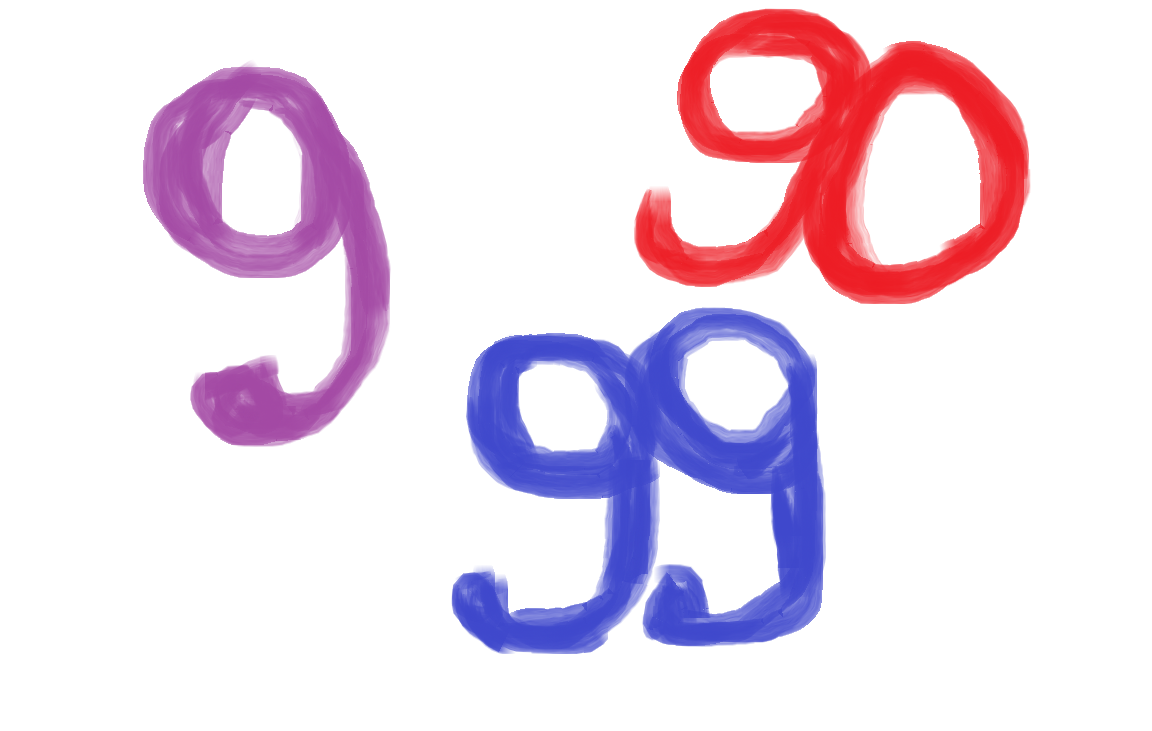 9
90
99